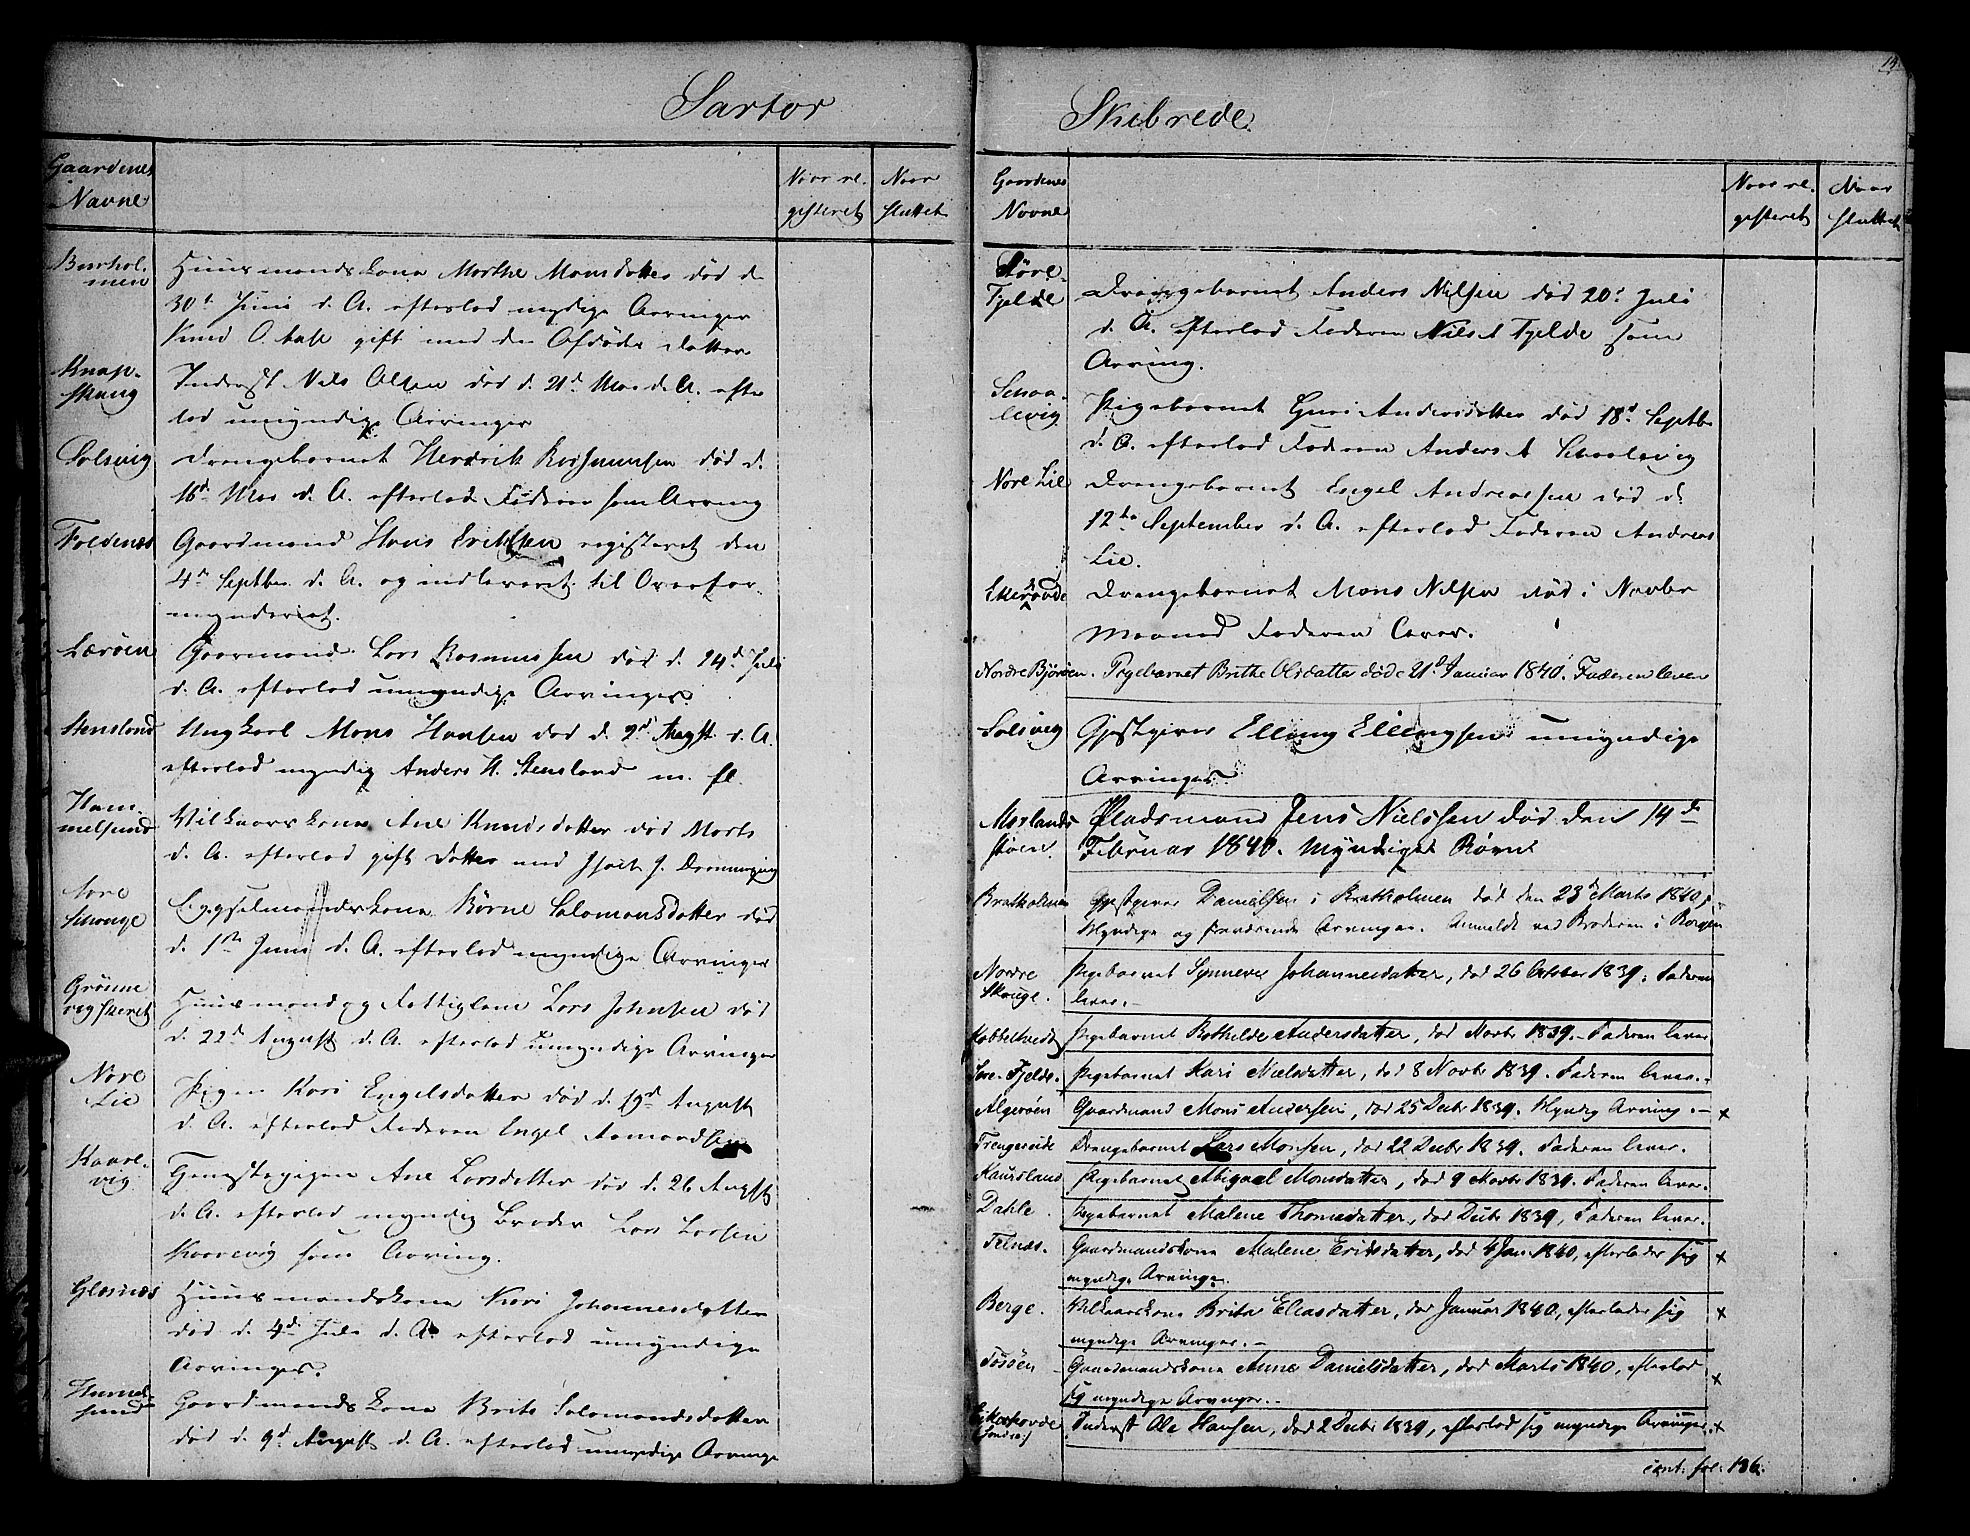 Sartor
Gaardenes Navne
Naar registeret
Naar sluttet
Buarholmen
Huusmandskone Marthe Monsdatter død d.
30t Juni d. A. efterlod myndige Arvinger
Knud O. gift med den Afdødes Datter
Knapskaug
Inderst Nils Olsen død d. 21d Mai d. A. efter
lod umyndige Arvinger
Solsvig
Drengebarnet Hendrik Rasmussen død d.
16d Mai d. A. efterlod Faderen som Arving
Foldenæs
Gaardmand Hans Eriksen registeret den
4de Septbr. d. A. og indleveret til Overfor-
mynderiet.
Lærøen
Gaarmand Lars Rasmussen død d. 24d Juli
d. A. efterlod umyndige Arvinger
Stensland
Ungkarl Mons Hansen død d. 2d Augst d. A.
efterlod myndig Anders H. Stensland m. fl.
Hammelsund
Vilkaarskone Ane Knudsdatter død Marts
d. A. efterlod gift Datter med J.
Søre Skauge
Løgselmandskone Børne Salomonsdatter død
d. 1ste Juni d. A. efterlod myndige Arvinger
Grønnevigskaret
Huusmand og Fattiglem Lars Johnsen død
d. 22d August d. A. efterlod umyndige Arvinger
Nore Lie
Pigen Kari Engelsdatter død d. 19d August
d. A. efterlod Faderen Engel
Kaarevig
Tjenestepigen Ane Larsdatter død d. 26 Augst
d. A. efterlod myndig Broder Lars Larsen
Kaarevig som Arving.
Glesnæs
Huusmandskone Kari Johannesdatter
død d. 4d Juli d. A. efterlod umyndige
Arvinger.
Hummelsund
Gaardmandskone Brite Salomonsdatter
død d. 9d August d. A. efterlod umyndige Arvinge
14.
Skibrede.
Gaardenes Navne
Naar registeret
Naar sluttet
Søre Fjelde
Drengebarnet Anders Nilsen død 20d Juli
d. A. efterlod Faderen Nils A Fjelde som
Arving.
Skaalevig
Pigebarnet Guri Andersdatter død 18d Septbr
d. A. efterlod Faderen Anders A Skaalevig
Nore Lie
Drengebarnet Engel Andreassen død d.
12te September d. A. efterlod Faderen Andreas
Lie.
Drengebarnet Mons Nilsen død i Novbr
Maaned Faderen lever.
Nordre Bjorøen. Pigebarnet Brithe Olsdatter død 21d Januar 1840. Faderen lever
Solsvig
Gjestgiver Elling Ellingsen umyndige
Arvinger
Morlands støen.
Pladsmand Jens Nielssen død den 14de
Februar 1840. Myndiget Børn
Bratholmen
Gjestgiver Danielsen i Bratholmen død den 23d Marts 1840,
Myndige og fraværende Arvinger. Anmeldt ved Broderen i Bergen
Nordre Skauge.
Pigebarnet Synneve Johannesdatter, død 26 October 1839. Faderen
lever.-
Kobbeltvedt
Pigebarnet Bothilde Andersdatter, død Novbr 1839.- Faderen lever
Søre-Fjelde.
Pigebarnet Kari Nielsdatter, død 8 Novbr 1839. Faderen lever.-
Algerøen
Gaardmand Mons Andersen, død 25 Decbr 1839. Myndig Arving.- x
Trengereide
Drengebarnet Lars Monsen, død 22 Decbr 1839. Faderen lever.
Kausland
Pigebarnet Abigael Monsdatter, død 9 Novbr 1839. Faderen lever.
Dahle.
Pigebarnet Malene Thomasdatter, død Decbr 1839, Faderen lever.
Telnæs.
Gaardmandskone Malene Eriksdatter, død 4 Jan. 1840, efterlader sig x
myndige Arvinger.
Berge.
Vilkaarskone Brita Eliasdatter, død Januar 1840, efterlader sig x
myndige Arvinger.-
Tøsøen
Gaardmandskone Anna Danielsdatter, død Marts 1840, efterlod x
sig myndige Arvinger.-
Inderst Ole Hansen, død 2 Decbr 1839, efterlod sig myndige Arvinger. x
cont. fol: 186.